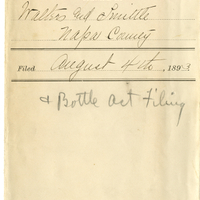 Walters and Smittle
Napa County
Filed August 4th, 1893
& Bottle Act Filing